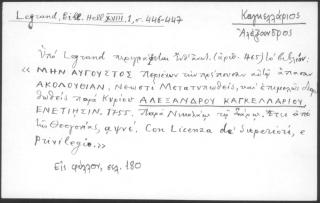 Legrand, Bibl. Hell. XVIII, 1, σ. 446-447
Καγκελλάριος
Ἀλέξανδρος
Ὑπό Legrand περιγράφεται (ἀριθ. 465) τό βιβλίον:
« ΜΗΝ ΑΥΓΟΥΣΤΟΣ Περιέχων τήν πρέπουσαν αὐτῷ ἅπασαν
ΑΚΟΛΟΥΘΙΑΝ, Νεωστί Μετατυπωθείς, καί ἐπιμελῶς διορ
θωθείς παρά Κυρίου ΑΛΕΞΑΝΔΡΟΥ ΚΑΓΚΕΛΛΑΡΙΟΥ,
ΕΝΕΤΙΗΣΙΝ, 1755. Παρά Νικολάῳ τῷ Σάρῳ. Ἔτει ἀπό
τῆς Θεογονίας, αψνέ. Con Licenza de' Superiori, e
Privilegio. »
Εἰς φύλλον, σελ. 180